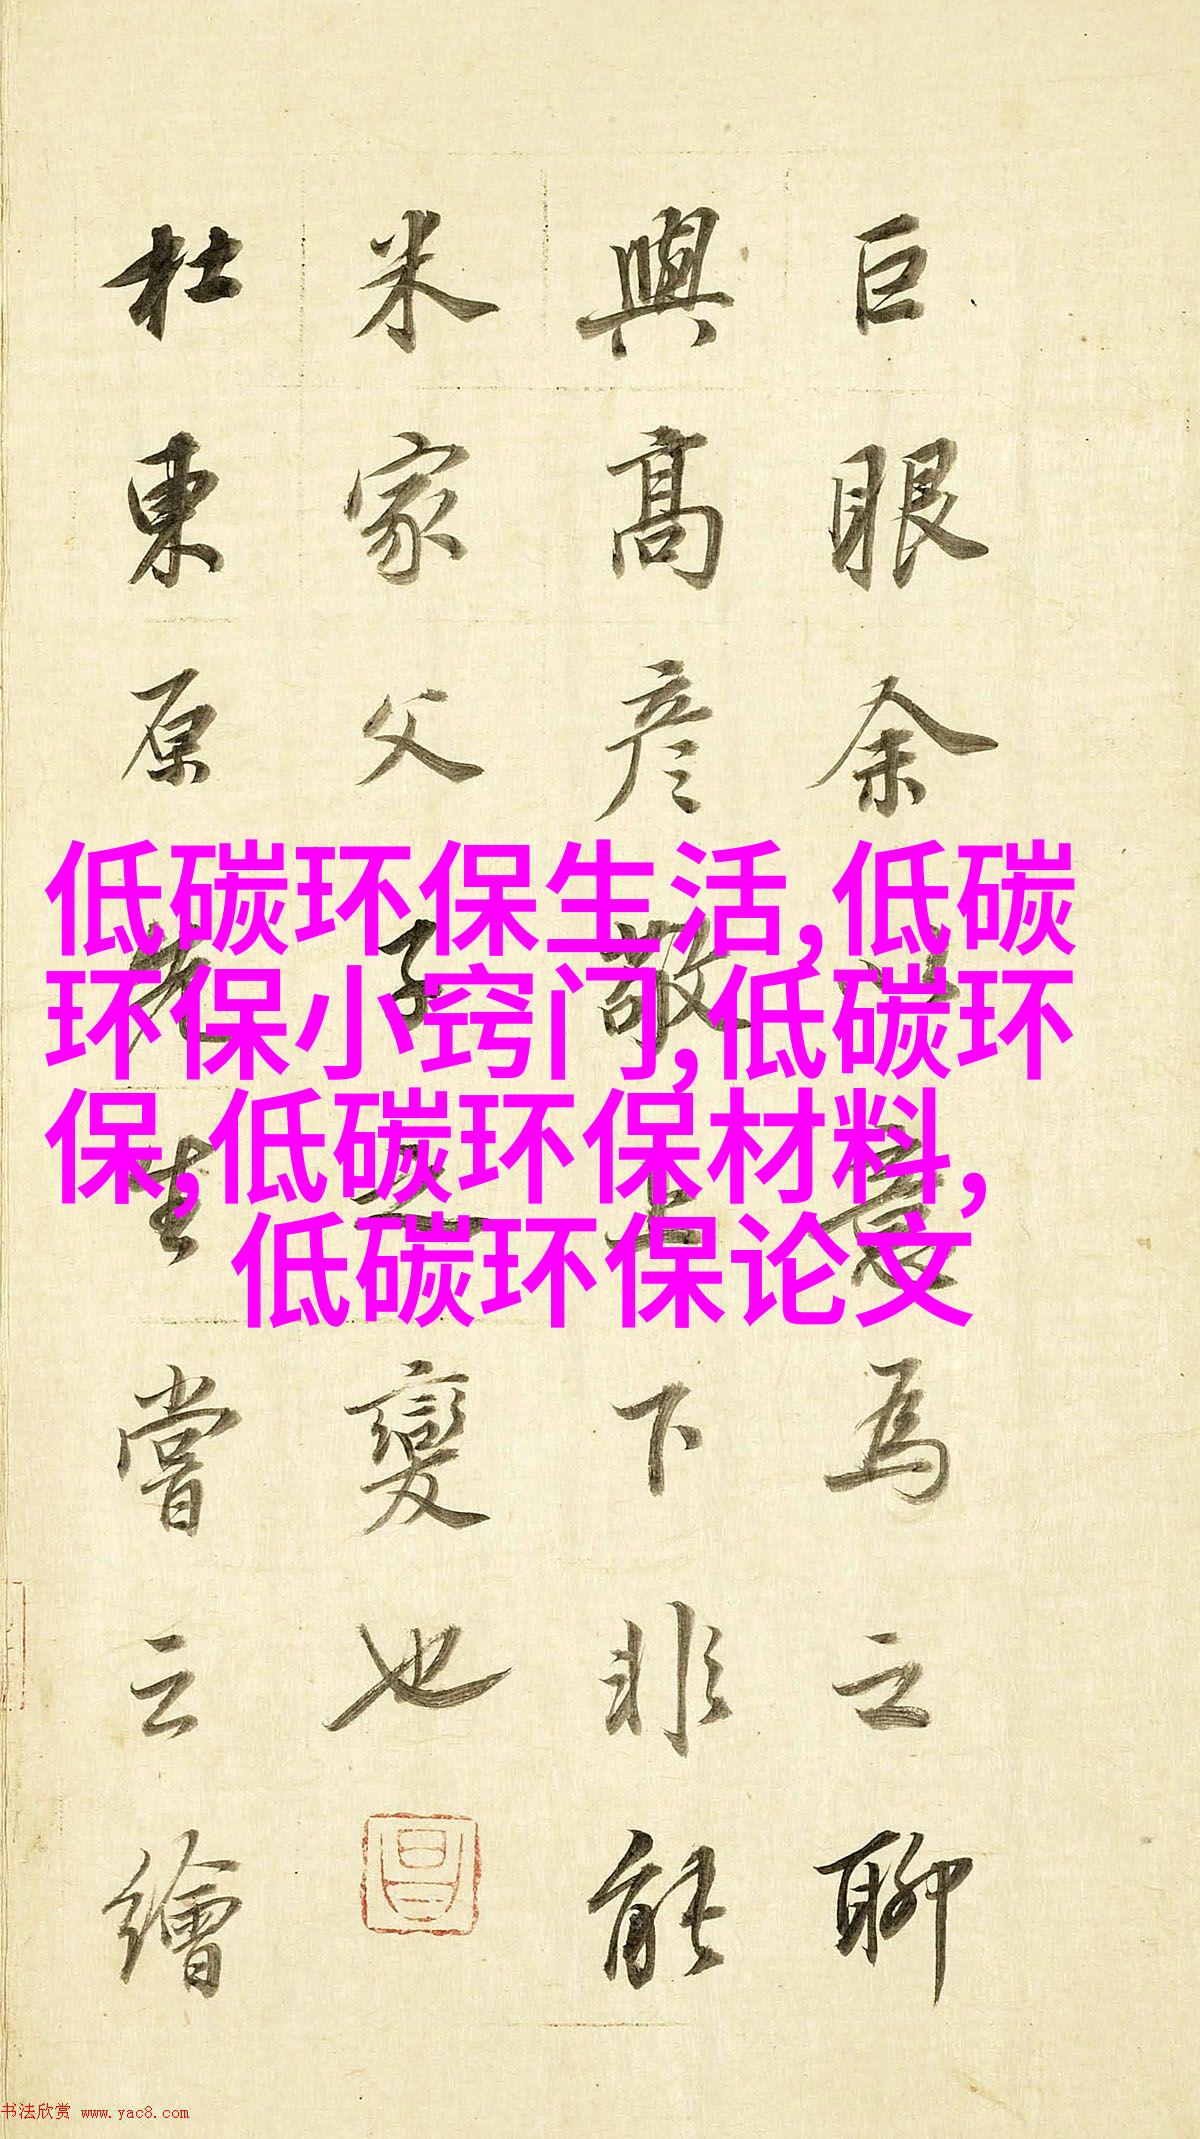 巨眼余以意为之聊
與高彦敬上下非能
米家父子之變也
杜東原先生嘗云繪
低碳环保生活,低碳
环保小窍门,低碳环
保,低碳环保材料,
低碳环保论文
书法欣赏 www.yac8.com